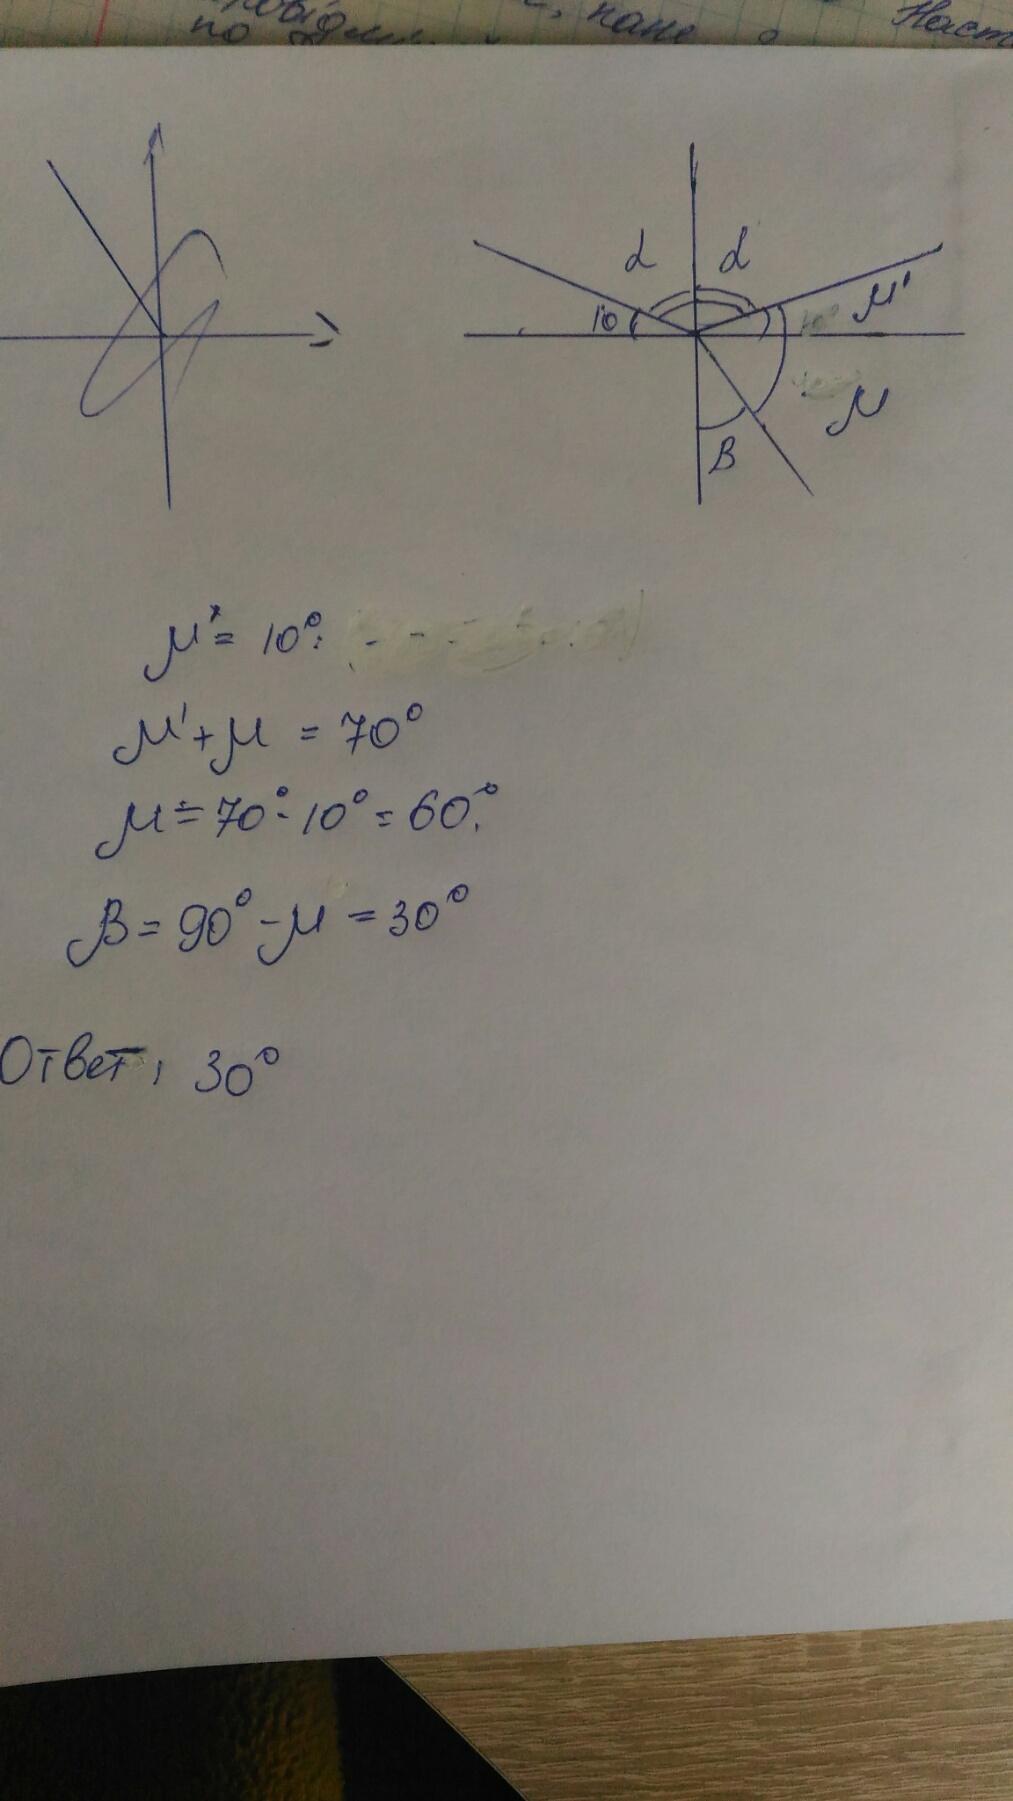 по
, пане
α α
10 μ'
μ
β
μ' = 10°:
μ' + μ = 70°
μ = 70° - 10° = 60°.
β = 90° - μ = 30°
Ответ, 30°